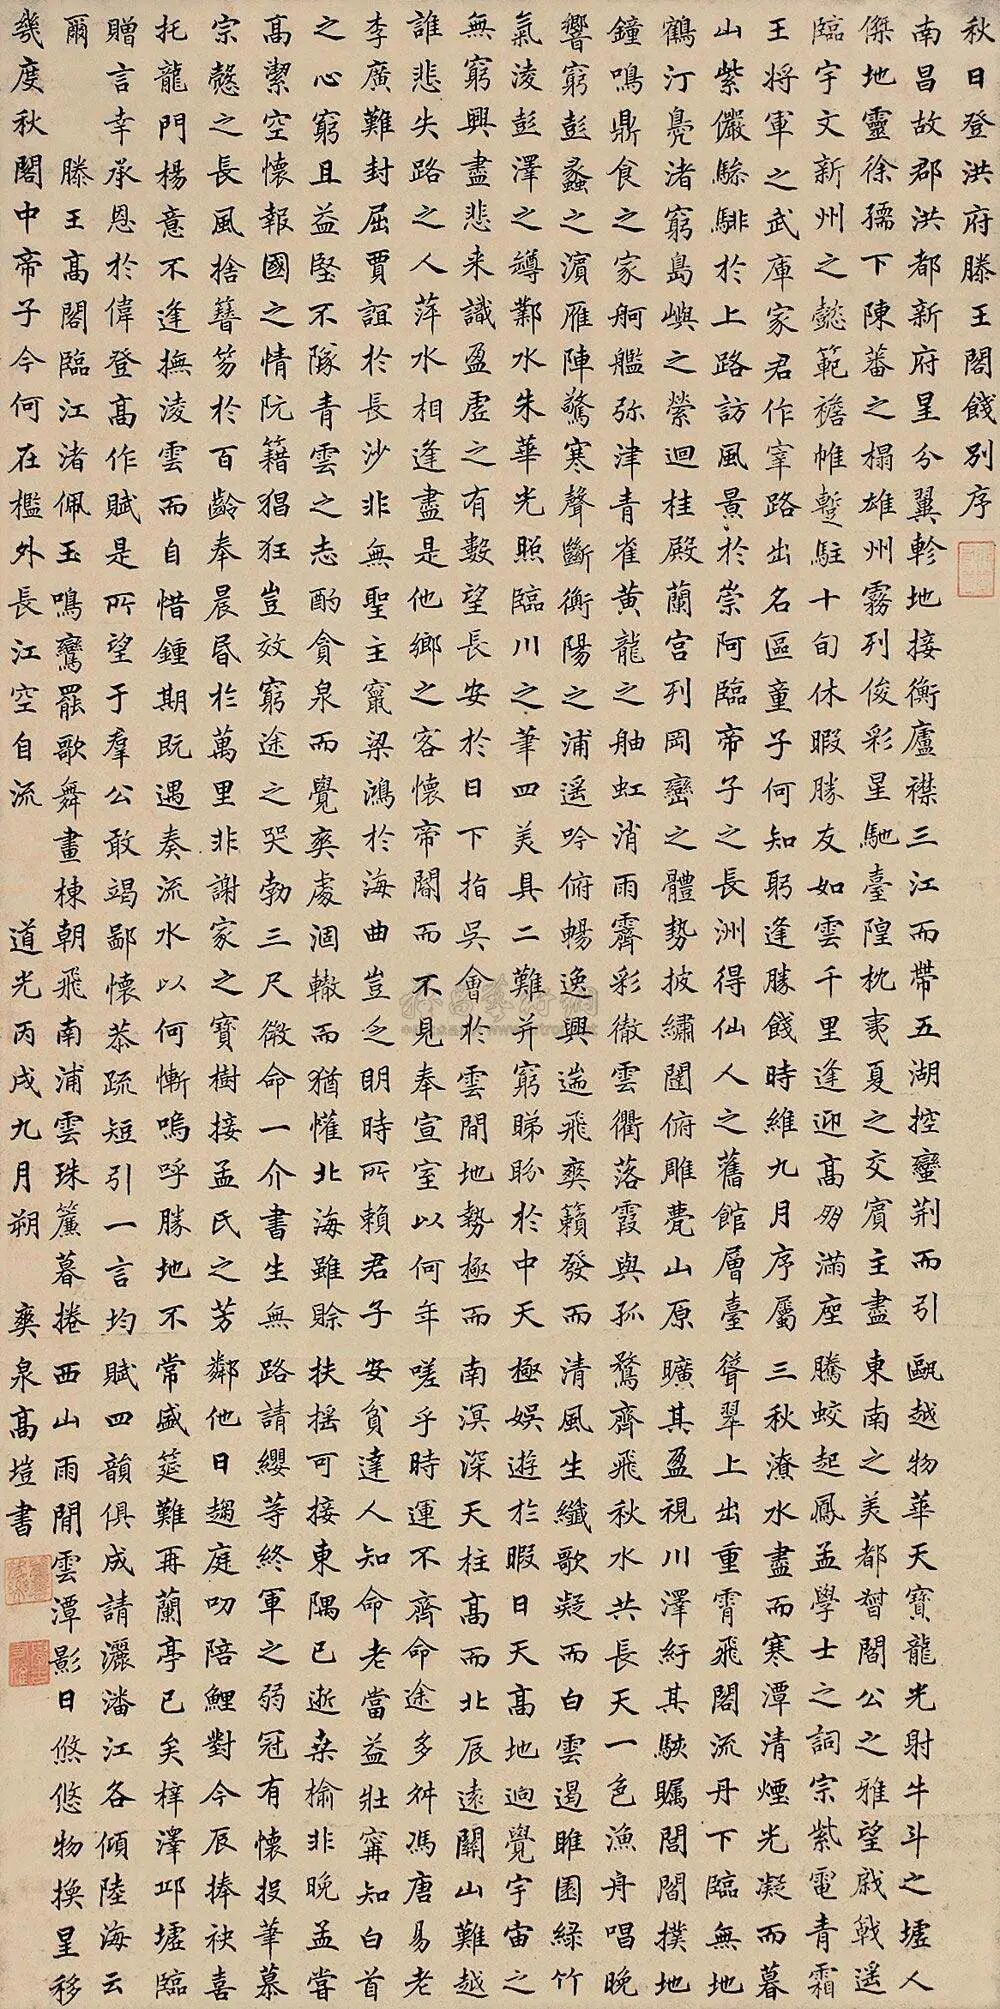 秋日登洪府滕王閣餞別序
南昌故郡洪都新府星分翼軫地接衡廬襟三江而帶五湖控蠻荆而引甌越物華天寶龍光射牛斗之墟人
傑地靈徐孺下陳蕃之榻雄州霧列俊彩星馳臺隍枕夷夏之交賓主盡東南之美都督閻公之雅望戚戟遥
臨宇文新州之懿範襜帷蹔駐十旬休暇勝友如雲千里逢迎高朋滿座騰蛟起鳳孟學士之詞宗紫電青霜
王将軍之武庫家君作宰路出名區童子何知躬逢勝餞時維九月序屬三秋潦水盡而寒潭清煙光凝而暮
山紫儼驂騑於上路訪風景於崇阿臨帝子之長洲得仙人之舊館層臺聳翠上出重霄飛閣流丹下臨無地
鶴汀鳧渚窮島嶼之縈迴桂殿蘭宫列岡巒之體勢披繡闥俯雕甍山原曠其盈視川澤紆其駭矚閭閻撲地
鐘鳴鼎食之家舸艦弥津青雀黄龍之舳虹消雨霽彩徹雲衢落霞與孤鶩齊飛秋水共長天一色漁舟唱晚
響窮彭蠡之濱雁陣驚寒聲斷衡陽之浦遥吟俯暢逸興遄飛爽籟發而清風生纖歌凝而白雲遏睢園緑竹
氣凌彭澤之罇鄴水朱華光照臨川之筆四美具二難并窮睇盼於中天極娛遊於暇日天高地迥覺宇宙之
無窮興盡悲来識盈虚之有數望長安於日下指吳會於雲間地勢極而南溟深天柱高而北辰遠關山難越
誰悲失路之人萍水相逢盡是他鄉之客懷帝閽而不見奉宣室以何年嗟乎時運不齊命途多舛馮唐易老
李廣難封屈賈誼於長沙非無聖主竄梁鴻於海曲豈乏明時所賴君子安貧達人知命老當益壯寧知白首
之心窮且益堅不隊青雲之志酌貪泉而覺爽處涸轍而猶懽北海雖賒扶摇可接東隅已逝桒榆非晚孟嘗
高潔空懷報國之情阮籍猖狂豈效窮途之哭勃三尺微命一介書生無路請纓等終軍之弱冠有懷投筆慕
宗慤之長風捨簪笏於百齡奉晨昏於萬里非謝家之寶樹接孟氏之芳鄰他日趨庭叨陪鯉對今辰捧袂喜
托龍門楊意不逢撫凌雲而自惜鍾期既遇奏流水以何慚嗚呼勝地不常盛筵難再蘭亭已矣梓澤邱墟臨
贈言幸承恩於偉登高作賦是所望于羣公敢竭鄙懷恭疏短引一言均賦四韻俱成請灑潘江各傾陸海云
爾 滕王高閣臨江渚佩玉鳴鸞罷歌舞畫棟朝飛南浦雲珠簾暮捲西山雨閒雲潭影日悠悠物換星移
幾度秋閣中帝子今何在檻外長江空自流 道光丙戌九月朔 爽泉高塏書